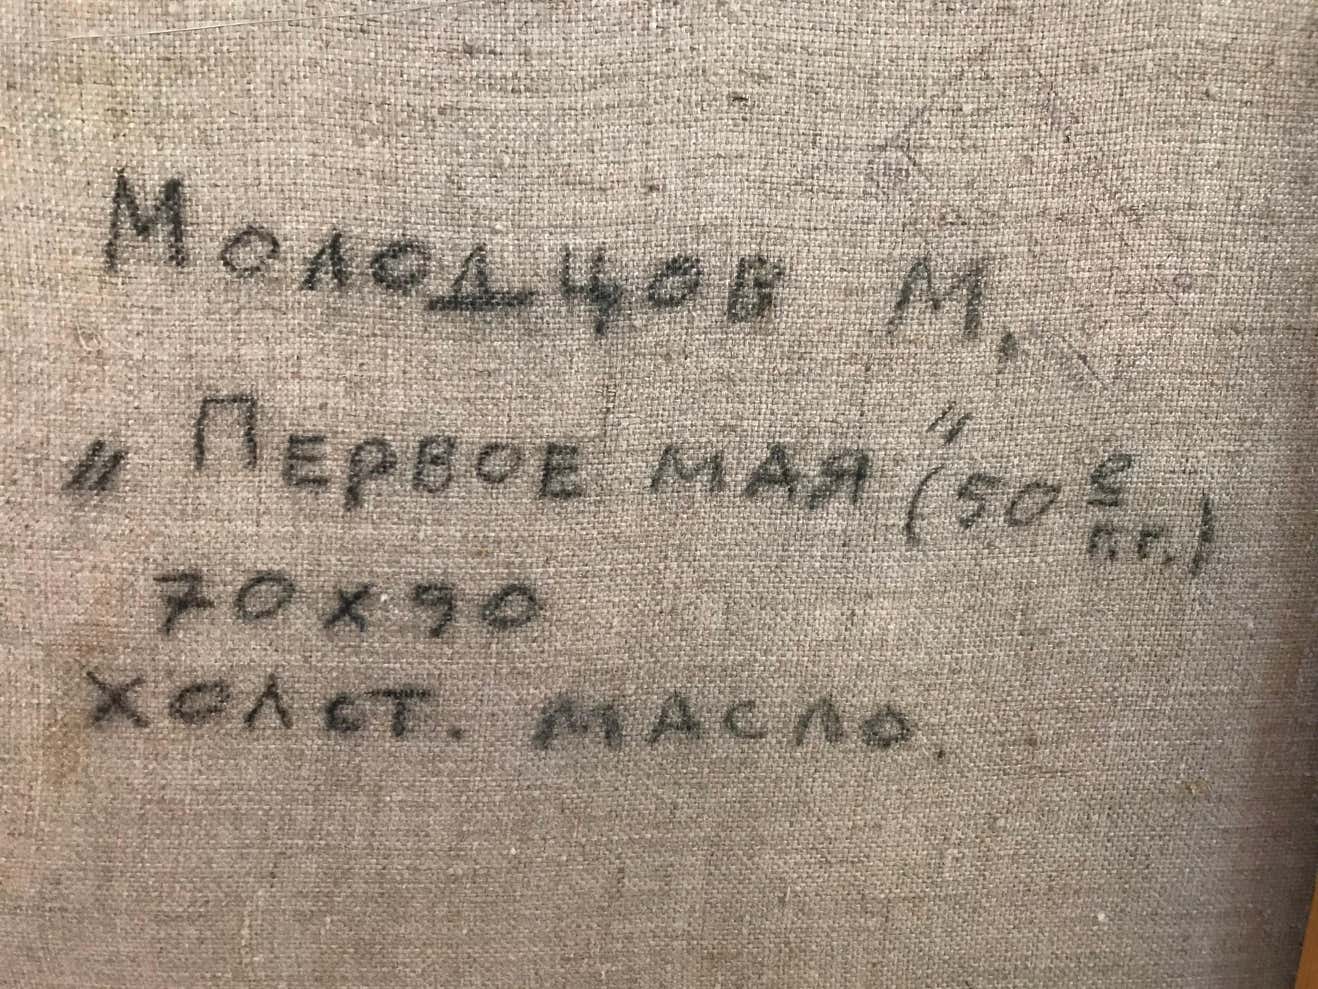 Молодцов М.
„Первое мая“ (50 е г.г.)
70х90
холст. масло.